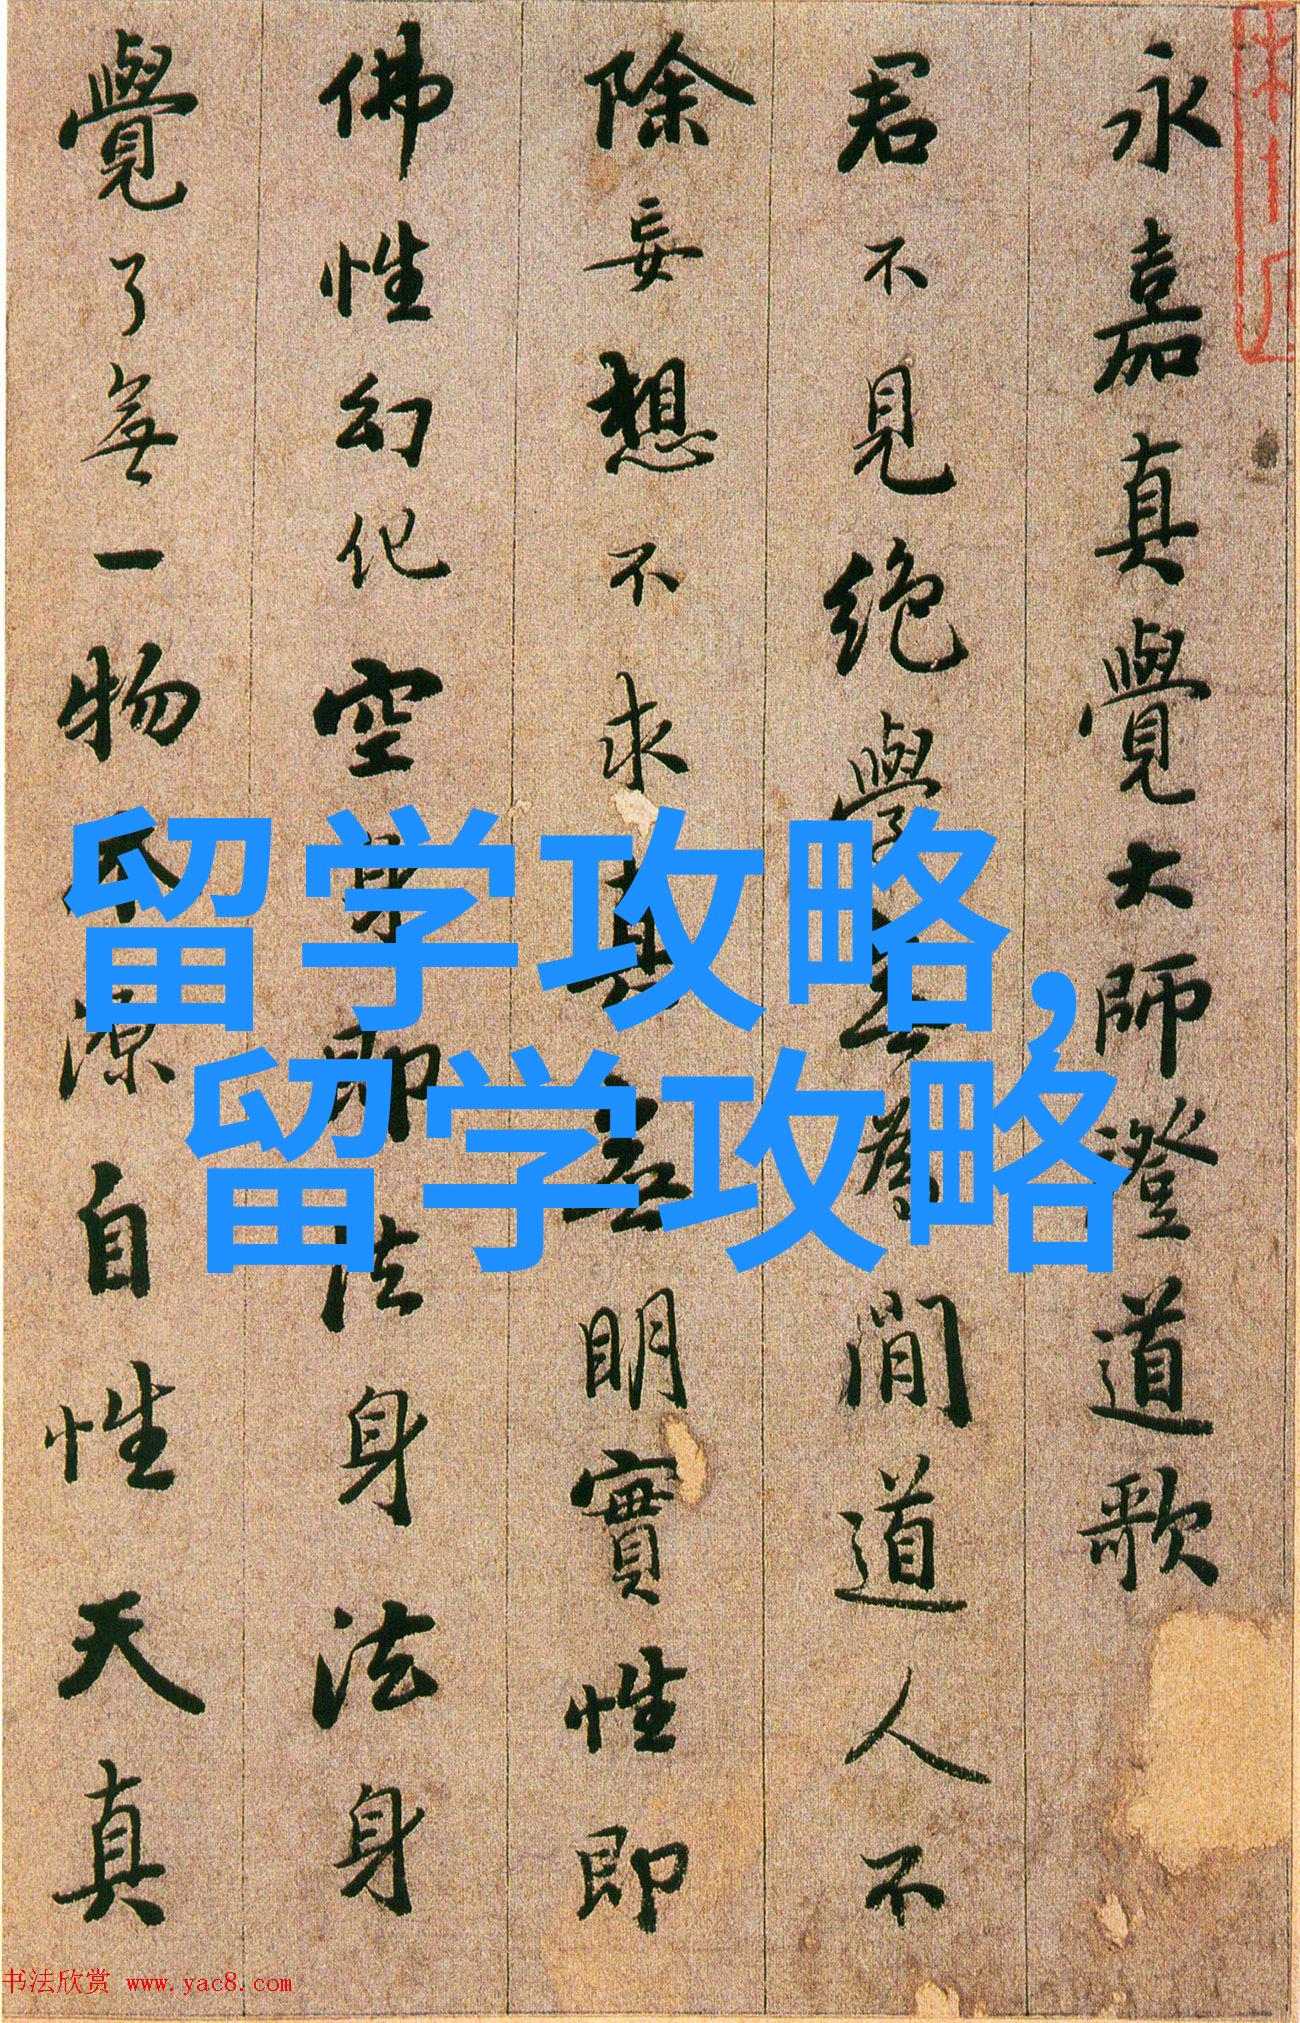 永嘉真覺大師證道歌
君不見絕學無為閒道人不
除妄想不求真無明實性即
佛性幻化空身即法身法身
覺了無一物本源自性天真
留学攻略,
留学攻略
书法欣赏 www.yac8.com